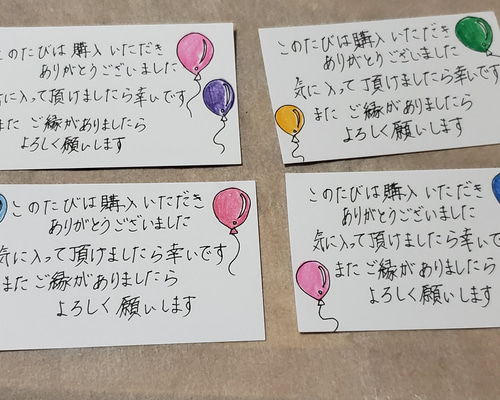 このたびは購入いただき
ありがとうございました
気に入って頂けましたら幸いです
また ご縁がありましたら
よろしく願いします
このたびは購入いただき
ありがとうございました
気に入って頂けましたら幸いです
また ご縁がありましたら
よろしく願いします
このたびは購入いただき
ありがとうございました
気に入って頂けましたら幸いです
また ご縁がありましたら
よろしく願いします
このたびは購入いただき
ありがとうございました
気に入って頂けましたら幸いで
また ご縁がありましたら
よろしく願いします